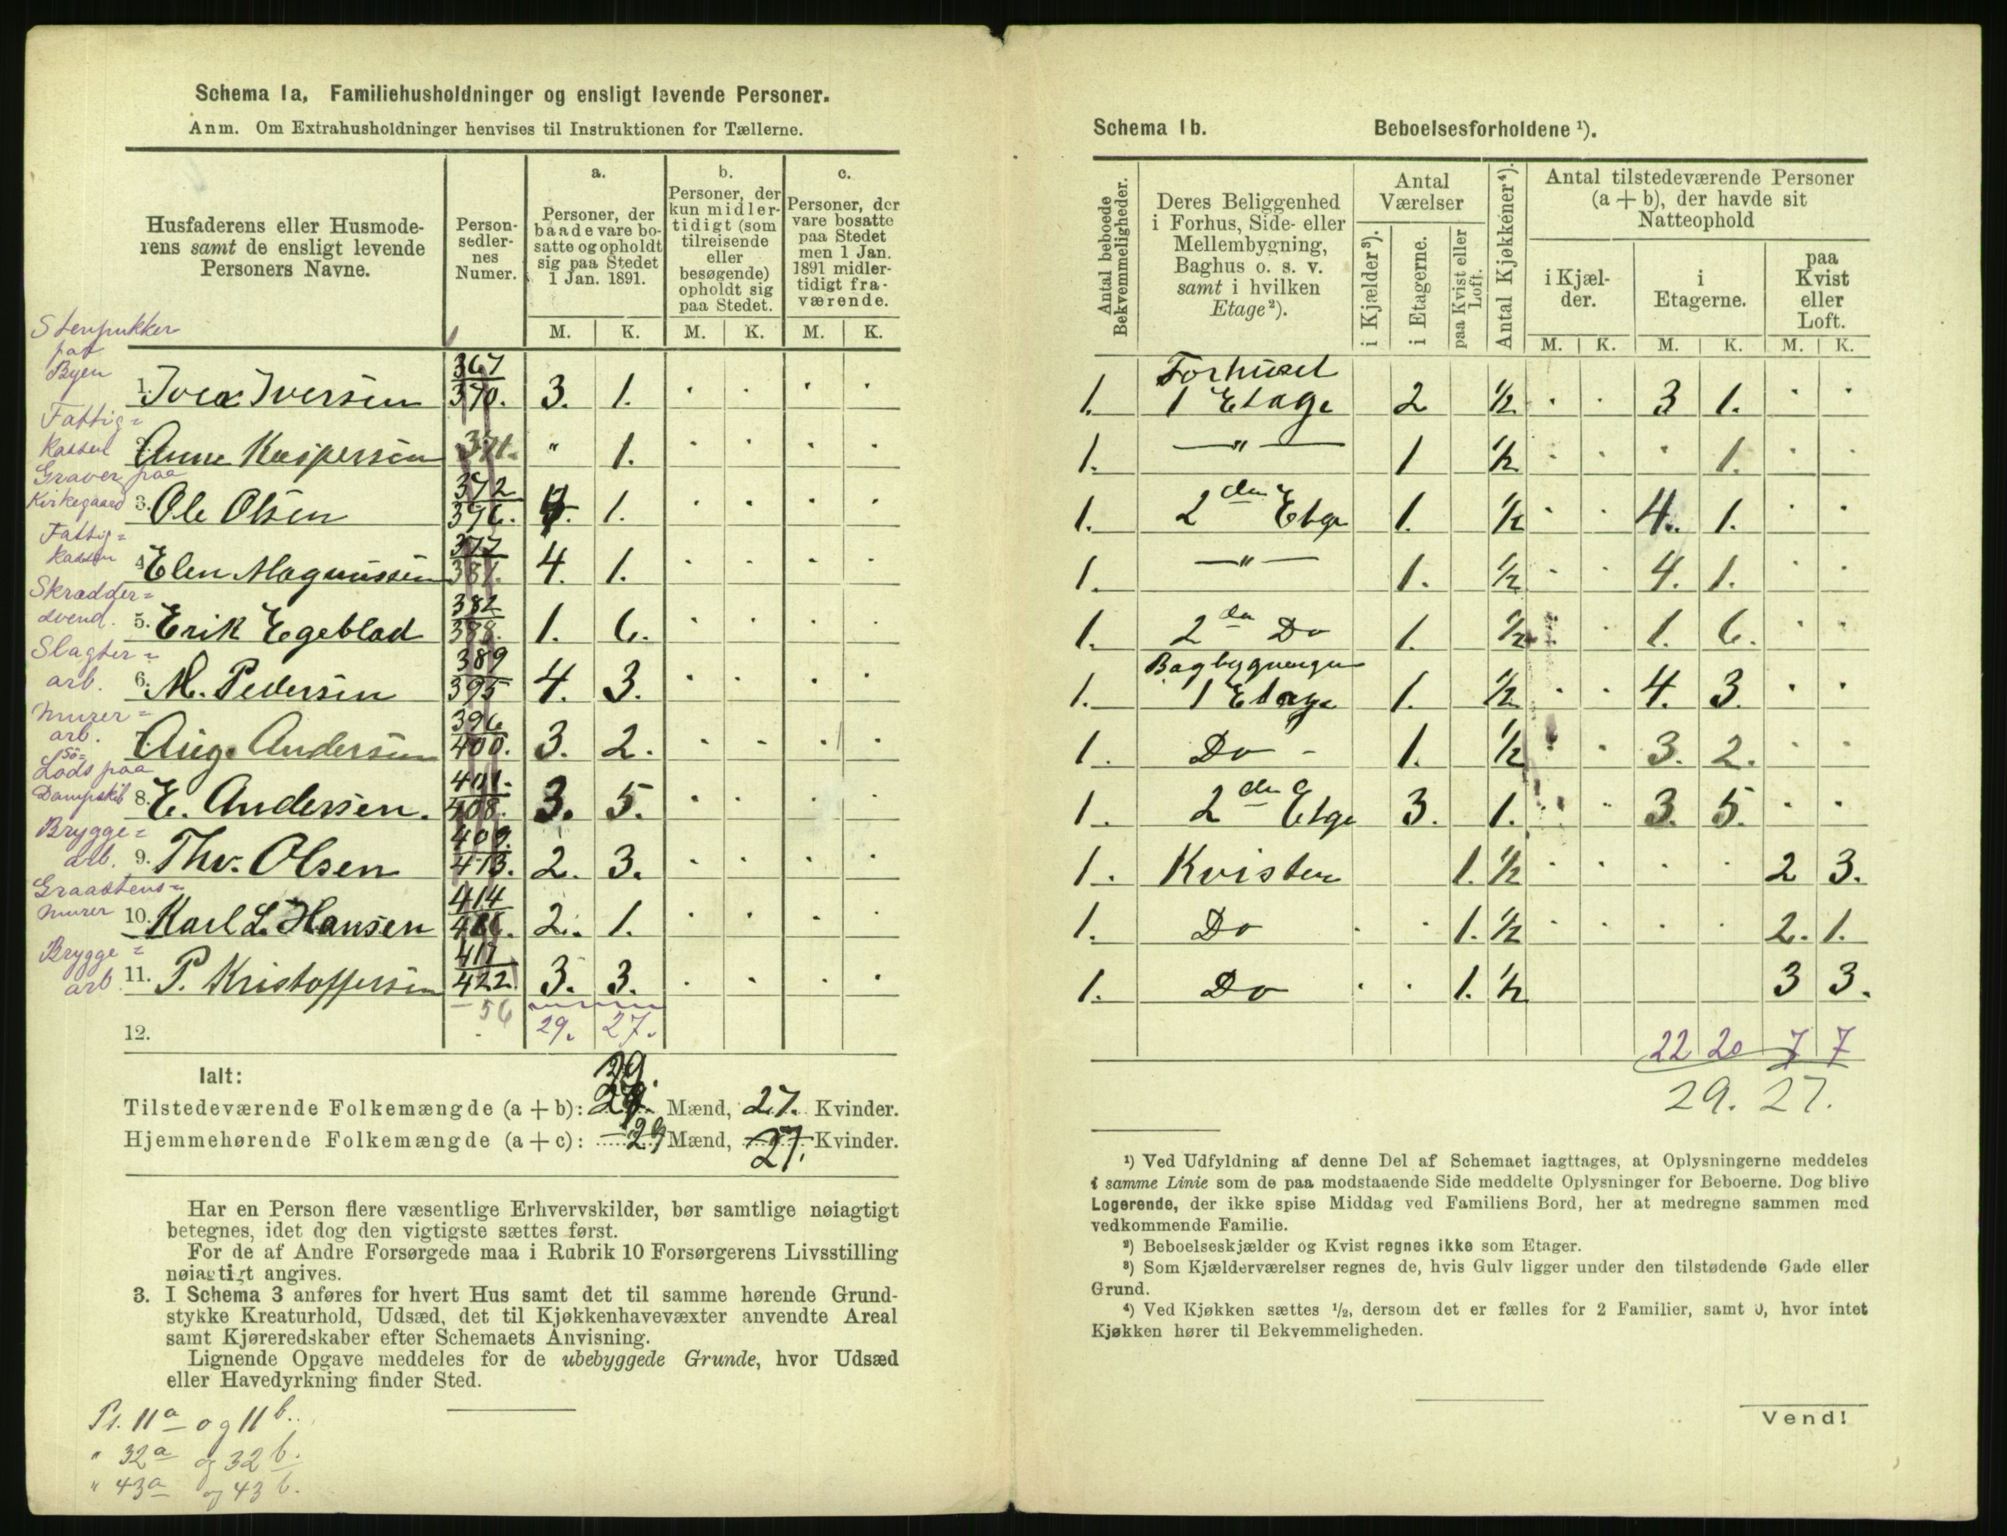 Schema 1a. Familiehusholdninger og ensligt levende Personer.
Anm. Om Extrahusholdninger henvises til Instruktionen for Tællerne.
Husfaderens eller Husmoderens samt de ensligt levende Personers Navne.
Personsedlernes Numer.
a. Personer, der baade vare bosatte og opholdt sig paa Stedet 1 Jan. 1891.
b. Personer, der kun midlertidigt (som tilreisende eller besøgende) opholdt sig paa Stedet.
c. Personer, der vare bosatte paa Stedet men 1 Jan. 1891 midlertidigt fraværende.
M. K. M. K. M. K.
Stenpukker paa Byen 1. Iver Iversen 367 370. 3. 1.
Fattigkassen 2. Anne Kaspersen 371. " 1.
Graver paa Kirkegaard 3. Ole Olsen 372 376. 4. 1.
Fattigkassen 4. Elen Magnussen 377 381. 4. 1.
Skrædder=svend. 5. Erik Egeblad 382 388. 1. 6.
Slagter=arb. 6. M. Pedersen 389 395 4. 3.
Murer=arb. 7. Aug. Andersen 396 400. 3. 2.
Lods paa Dampskib 8. E. Andersen. 401. 408. 3. 5.
Brygge=arb. 9. Thv. Olsen 409. 413. 2. 3.
Graastens=murer 10. Karl L. Hansen 414 416. 2. 1.
Brygge=arb. 11. P. Kristoffersen 417 422. 3. 3.
12. 56 29. 27.
Ialt:
Tilstedeværende Folkemængde (a + b): 29. Mænd, 27. Kvinder.
Hjemmehørende Folkemængde (a + c): 29 Mænd, 27. Kvinder.
Har en Person flere væsentlige Erhvervskilder, bør samtlige nøiagtigt
betegnes, idet dog den vigtigste sættes først.
For de af Andre Forsørgede maa i Rubrik 10 Forsørgerens Livsstilling
nøiagtigt angives.
3. I Schema 3 anføres for hvert Hus samt det til samme hørende Grund-
stykke Kreaturhold, Udsæd, det til Kjøkkenhavevæxter anvendte Areal
samt Kjøreredskaber efter Schemaets Anvisning.
Lignende Opgave meddeles for de ubebyggede Grunde, hvor Udsæd
eller Havedyrkning finder Sted.
Ps. 11a og 11b.
" 32a og 32b.
" 43a og 43b.
Schema 1b. Beboelsesforholdene ¹).
Antal beboede Bekvemmeligheder.
Deres Beliggenhed i Forhus, Side- eller Mellembygning, Baghus o. s. v. samt i hvilken Etage ²).
Antal Værelser
i Kjælder ³). i Etagerne. paa Kvist eller Loft.
Antal Kjøkkener ⁴).
Antal tilstedeværende Personer (a + b), der havde sit Natteophold
i Kjælder. i Etagerne. paa Kvist eller Loft.
M. K. M. K. M. K.
1. Forhuset 1 Etage 2 ½ 3 1.
1. — " — 1 ½ 1.
1. 2den Etge 1. ½ 4. 1.
1. — " — 1. ½ 4. 1.
1. 2den Do 1. ½ 1. 6.
1. Bagbygningen 1 Etage 1. ½ 4. 3.
1. Do - 1. ½ 3. 2.
1. 2den Etge 3. 1. 3. 5.
1. Kvisten 1. ½ 2 3.
1. Do 1. ½ 2. 1.
1. Do 1. ½ 3 3.
22 20 7 7
29. 27.
¹) Ved Udfyldning af denne Del af Schemaet iagttages, at Oplysningerne meddeles
i samme Linie som de paa modstaaende Side meddelte Oplysninger for Beboerne. Dog blive
Logerende, der ikke spise Middag ved Familiens Bord, her at medregne sammen med
vedkommende Familie.
²) Beboelseskjælder og Kvist regnes ikke som Etager.
³) Som Kjælderværelser regnes de, hvis Gulv ligger under den tilstødende Gade eller
Grund.
⁴) Ved Kjøkken sættes ½, dersom det er fælles for 2 Familier, samt 0, hvor intet
Kjøkken hører til Bekvemmeligheden.
Vend!